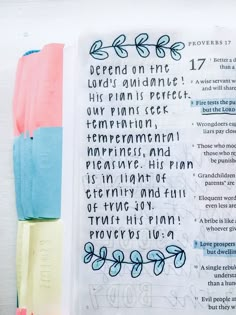 Depend on the
Lord's guidance!
His plan is perfect.
Our plans seek
temptation,
temperamental
happiness, and
pleasure. His plan
is in light of
eternity and full
of true joy.
Trust His plan!
Proverbs 16:9
PROVERBS 17
17 Better a d
than a
2 A wise servant w
and will shar
3 Fire tests the p
but the LORD
4 Wrongdoers ea
liars pay clos
5 Those who moc
those who re
be pun
6 Grandchildren
parents are
7 Eloquent word
even less are
8 A bribe is like
whoever giv
9 Love prospers
but dwelling
10 A single rebuk
understan
11 Evil people a
but they